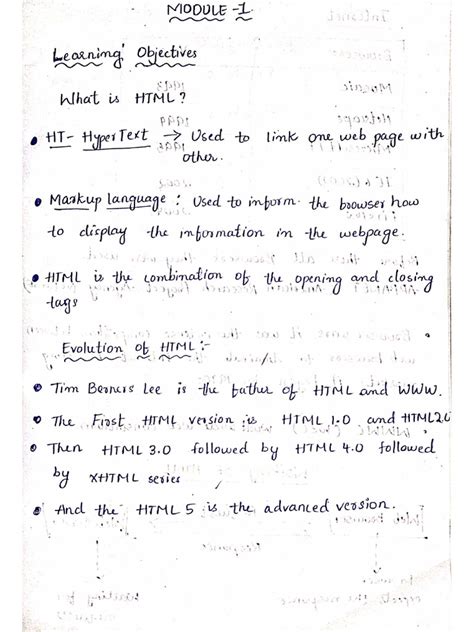 MODULE-1
Learning Objectives
What is HTML?
• HT- HyperText → Used to link one web page with
other.
• Markup language : Used to inform the browser how
to display the information in the webpage.
• HTML is the combination of the opening and closing
tags
Evolution of HTML :-
• Tim Berners Lee is the father of HTML and WWW.
• The First HTML version is HTML 1.0 and HTML2.0
• Then HTML 3.0 followed by HTML 4.0 followed
by XHTML series
• And the HTML 5 is the advanced version.